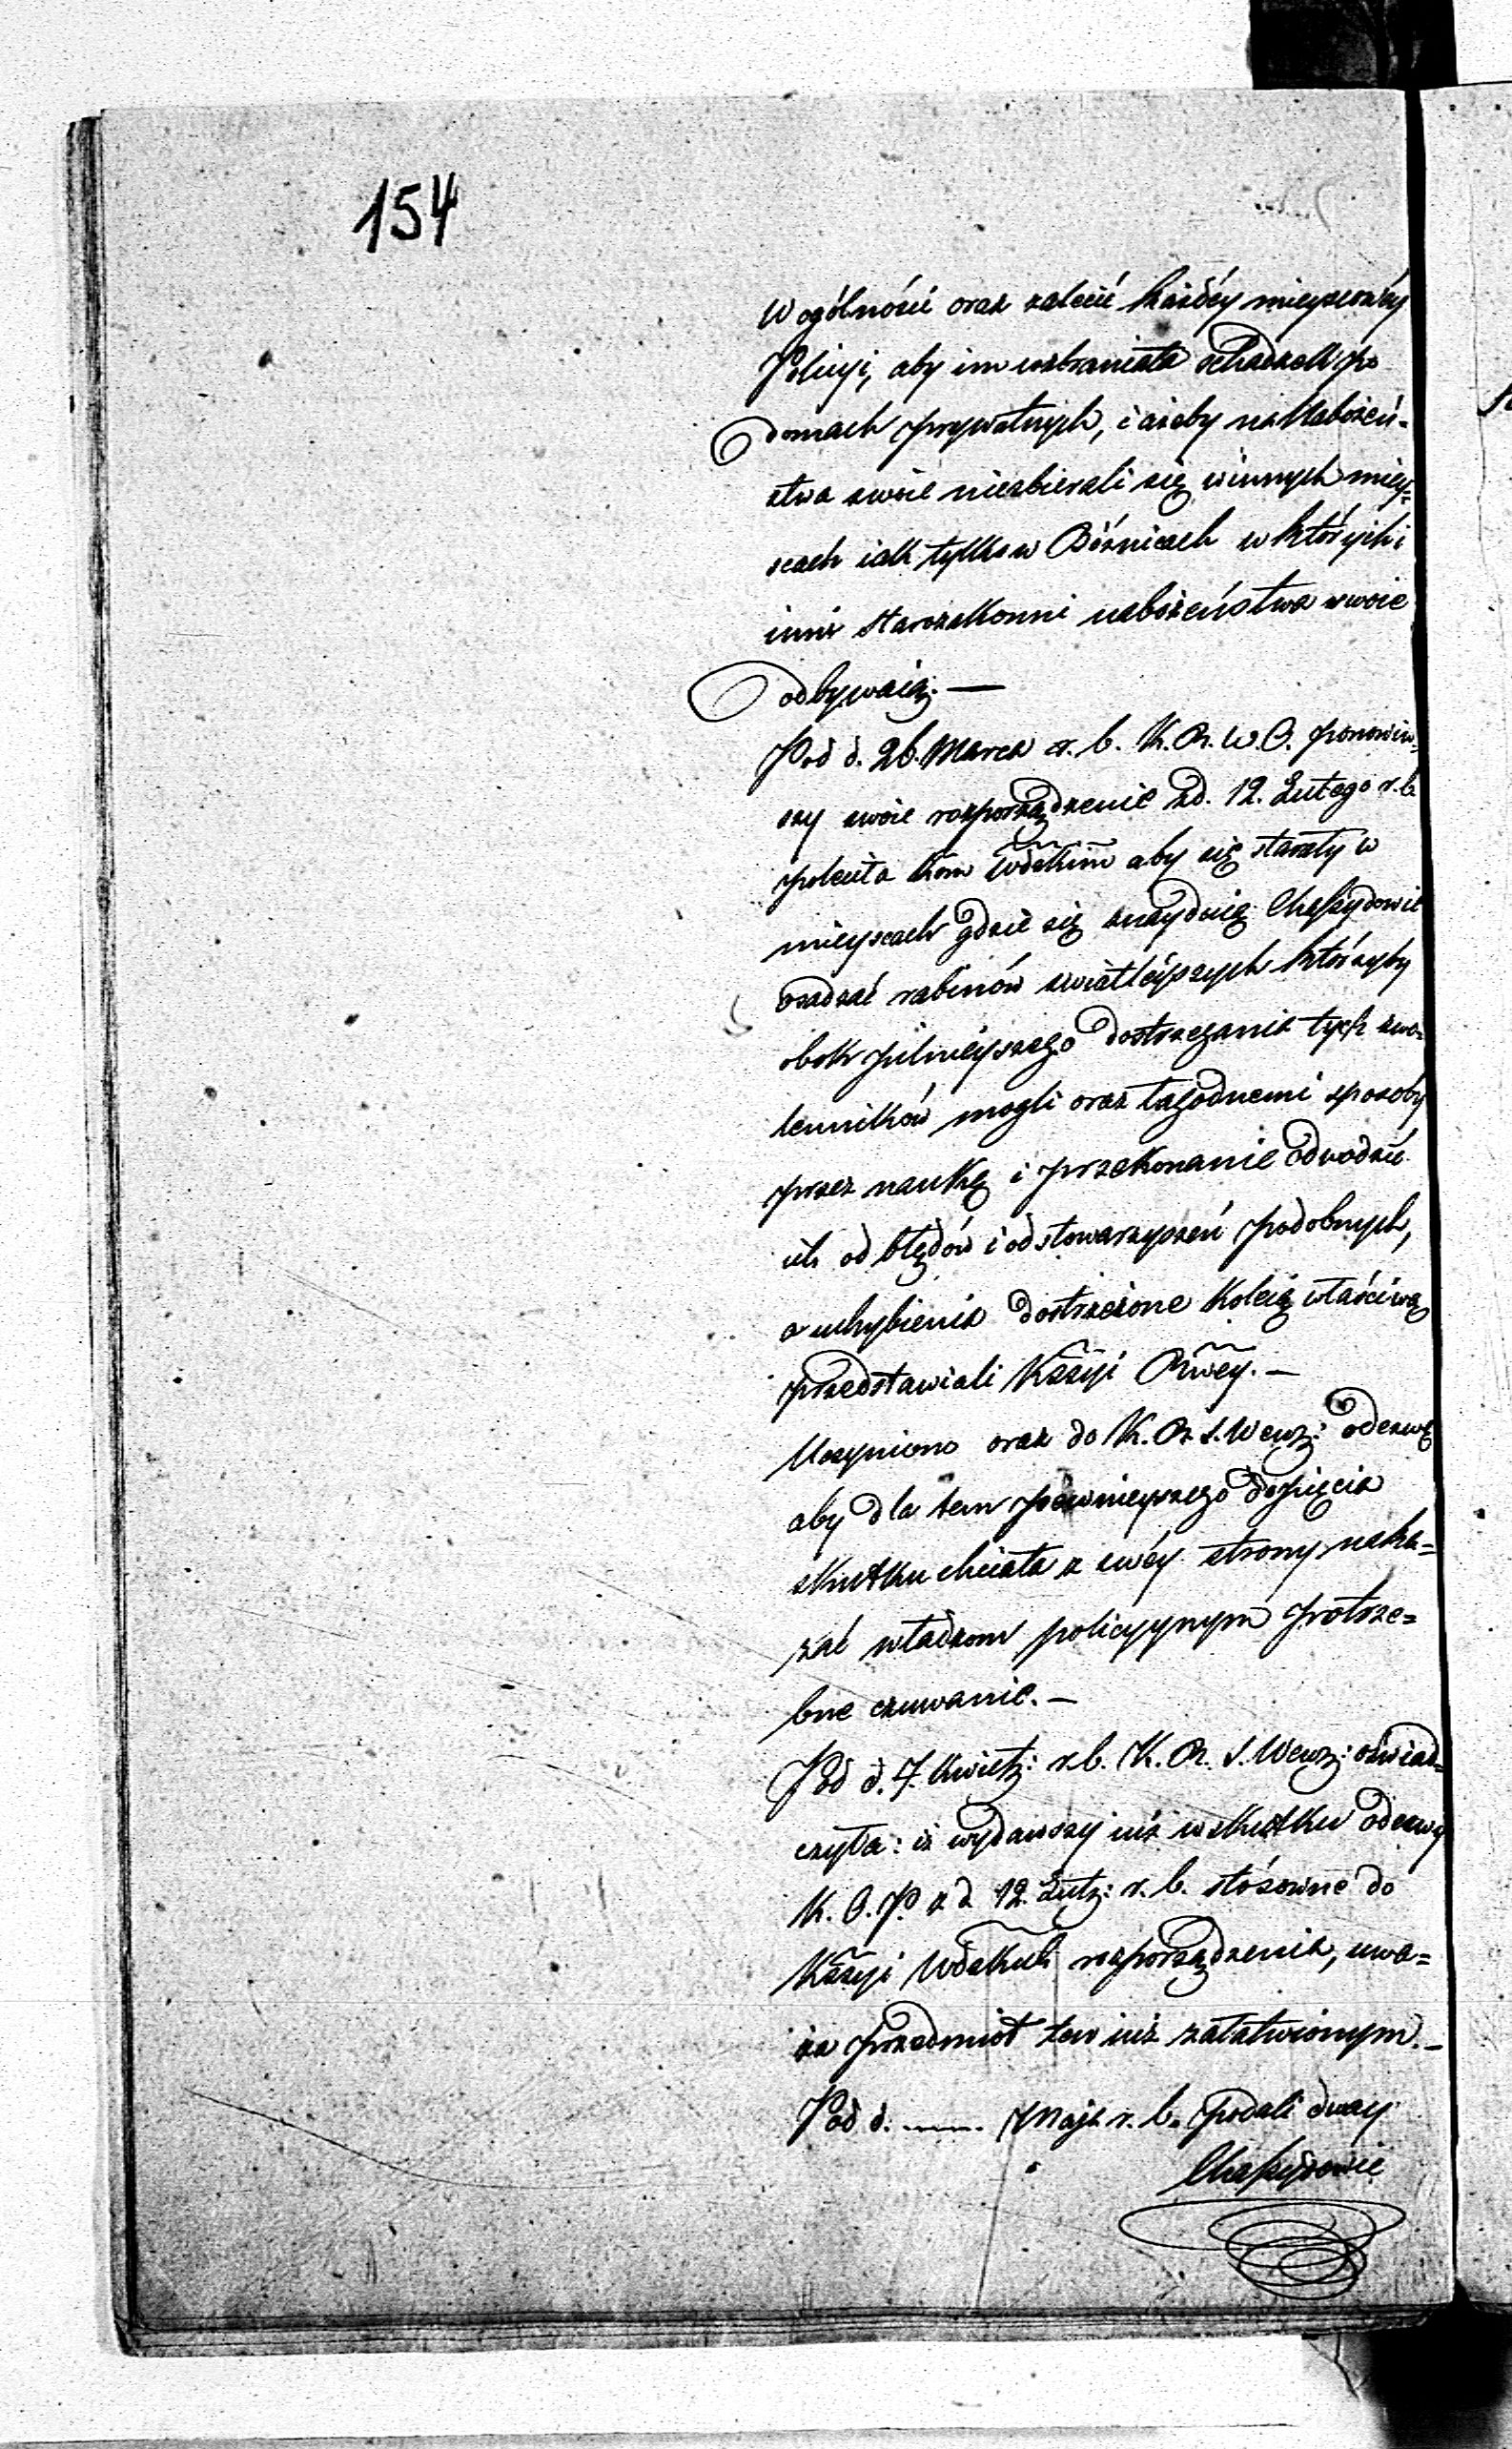 154
W ogólności oraz zalecić każdéy mieyscowéy
Policyi, aby im wzbraniała schadzek po
domach prywatnych, i ażeby na Nabożeń-
stwa swoie niezbierali się winnych miey-
scach iak tylko w Bóżnicach w których i
inni starozakonni nabożeństwa swoie
odbywaią. —
Pod d. 26. Marca r. b. K. R. W. O. ponowiw-
szy swoie rozporządzenie z d. 12. Lutego r. b.
poleciła Kom Wdzkim aby się starały w
mieyscach gdzie się znayduią Chassydowie
osadzać rabinów swiatłéyszych którzyby
obok pilnieyszego dostrzegania tych zwo-
lenników mogli oraz łagodnemi sposoby
przez naukę i przekonanie odwodzić
ich od błędów i od stowarzyszeń podobnych,
a uchybienia dostrzeżone koleią właściwą
przedstawiali Kssyi Rwey. —
Uczyniono oraz do K. R. S. Wewn: odezwę
aby dla tem pewnieyszego dopięcia
skutku chciała z swéy strony naka-
zać władzom policyynym potrze-
bne czuwanie. —
Pod d. 7. Kwietn: r. b. K. R. S. Wewn: oświad-
czyła: iż wydawszy iuż w skutku odezwy
K. O. P. z d 12. Lutg: r. b. stósowne do
Kssyi Wdzkich rozporządzenia, uwa-
ża przedmiot ten iuż załatwionym. —
Pod d. ..... Maja r. b. podali dway
Chassydowie